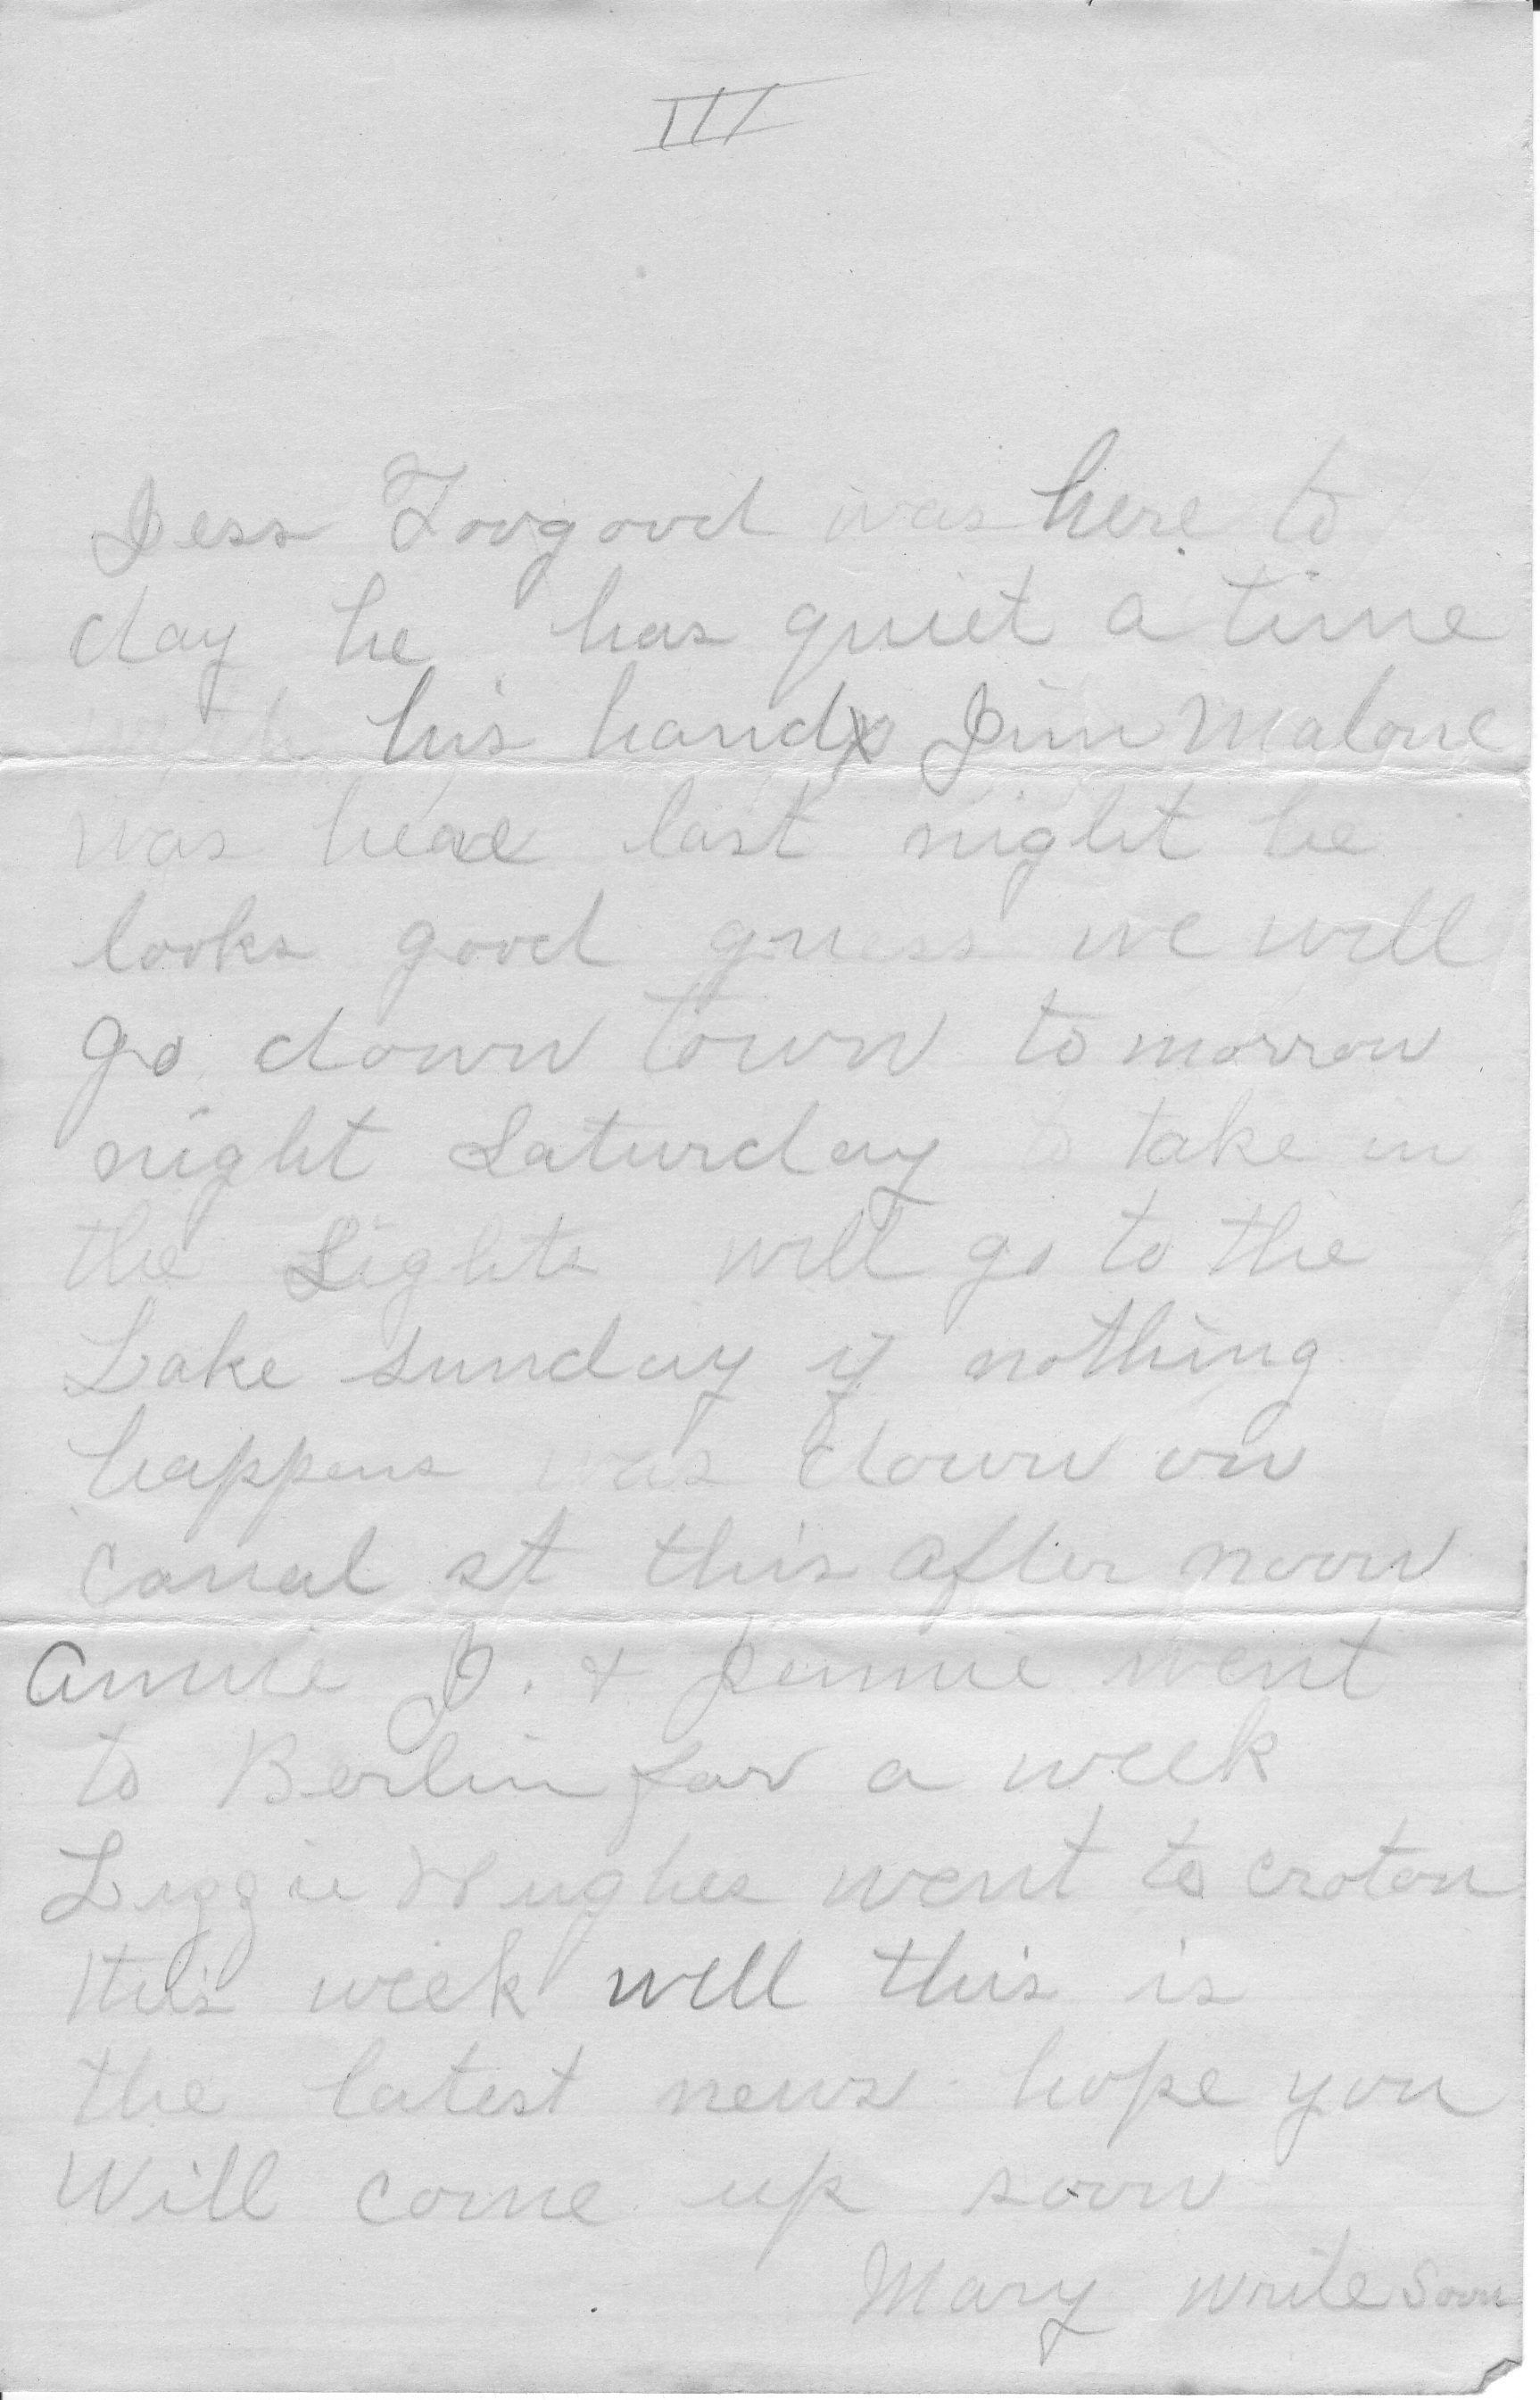 III
Jess Toogood was here to
day he has quiet a time
with his hand Jim Malone
was heae last night he
looks good guess we will
go down town to morrow
night Saturday to take in
the Sights will go to the
Lake sunday if nothing
happens was down on
canal st this after noon
Annie J. & Jennie went
to Berlin for a week
Lizzie Hughes went to croton
this week well this is
the latest news hope you
Will come up soon
Mary write soon